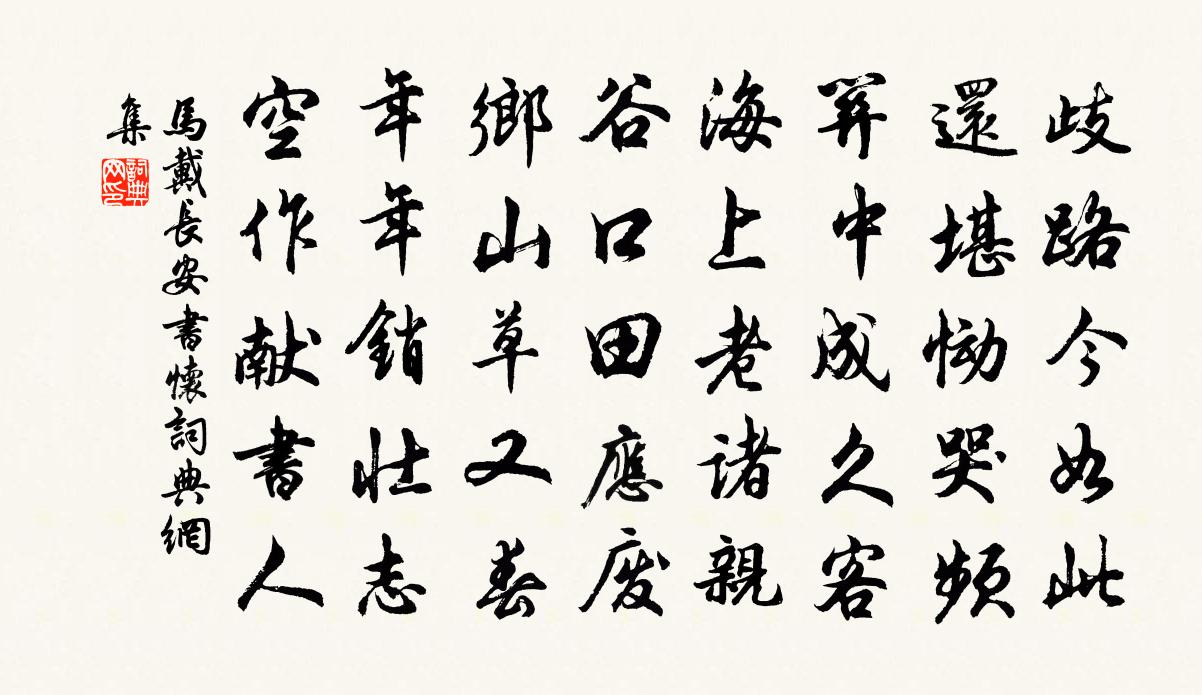 歧路今如此
還堪慟哭頻
關中成久客
海上老諸親
谷口田應廢
鄉山草又春
年年銷壯志
空作献書人
馬戴長安書懷詞典網
集
詞典网印